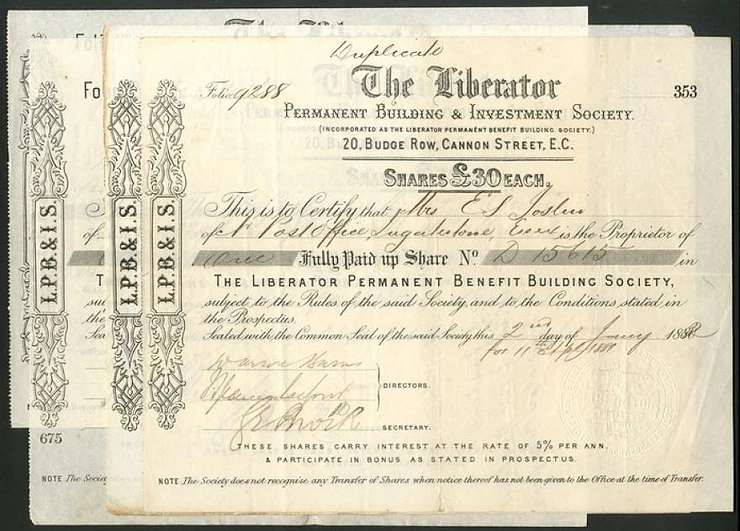 Duplicate
Folio 9288
The Liberator
353
PERMANENT BUILDING & INVESTMENT SOCIETY.
(INCORPORATED AS THE LIBERATOR PERMANENT BENEFIT BUILDING SOCIETY.)
20, BUDGE ROW, CANNON STREET, E.C.
SHARES £30 EACH.
This is to Certify that Mrs E S Joslin
of Post Office, Ingatestone, Essex is the Proprietor of
One Fully Paid up Share No. D 15615 in
THE LIBERATOR PERMANENT BENEFIT BUILDING SOCIETY,
subject to the Rules of the said Society and to the Conditions stated in
the Prospectus.
Sealed with the Common Seal of the said Society this 2nd day of 188
for 11th
DIRECTORS.
SECRETARY.
THESE SHARES CARRY INTEREST AT THE RATE OF 5% PER ANN.
& PARTICIPATE IN BONUS AS STATED IN PROSPECTUS.
NOTE The Society does not recognise any Transfer of Shares when notice thereof has not been given to the Office at the time of Transfer.
L.P.B.& I.S.
L.P.B.& I.S.
L.P.B.& I.S.
675
NOTE The